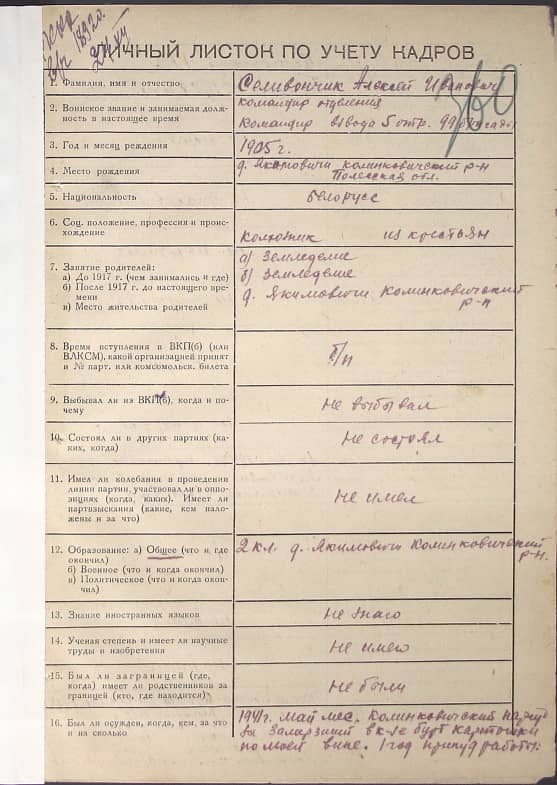 1892 г.
ЛИЧНЫЙ ЛИСТОК ПО УЧЕТУ КАДРОВ
1. Фамилия, имя и отчество
Селивончик Алексей Иванович
2. Воинское звание и занимаемая долж-
ность в настоящее время
командир отделения
Командир взвода 5 отр. 99 бригады
3. Год и месяц рождения
1905 г.
4. Место рождения
д. Якимовичи Колинковический р-н
Полесская обл.
5. Национальность
Белорусс
6. Соц. положение, профессия и проис-
хождение
Колхозник из крестьян
7. Занятие родителей:
а) До 1917 г. (чем занимались и где)
б) После 1917 г. до настоящего вре-
мени
в) Место жительства родителей
а) Земледелие
б) Земледелие
д. Якимовичи Колинковический
р-н
8. Время вступления в ВКП(б) (или
ВЛКСМ), какой организацией принят
и № парт. или комсомольск. билета
б/п
9. Выбывал ли из ВКП(б), когда и по-
чему
Не выбывал
10. Состоял ли в других партиях (ка-
ких, когда)
Не состоял
11. Имел ли колебания в проведении
линии партии, участвовал ли в оппо-
зициях (когда, каких). Имеет ли
партвзыскания (какие, кем нало-
жены и за что)
Не имел
12. Образование: а) Общее (что и где
окончил)
б) Военное (что и когда окончил)
в) Политическое (что и когда окон-
чил)
2 кл. д. Якимовичи Колинковический
р-н.
13. Знание иностранных языков
Не знаю
14. Ученая степень и имеет ли научные
труды и изобретения
Не имею
15. Был ли заграницей (где,
когда) имеет ли родственников за
границей (кто, где находится)
Не были
16. Был ли осужден, когда, кем, за что
и на сколько
1941 г. май мес. Колинковический нарсуд
за бурт картошки
по моей вине. 1 год принуд работы